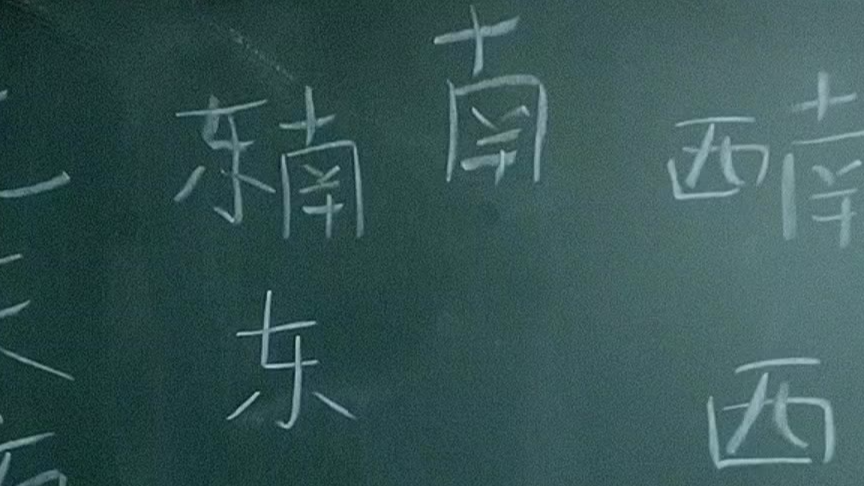 南
东南 西南
东 西